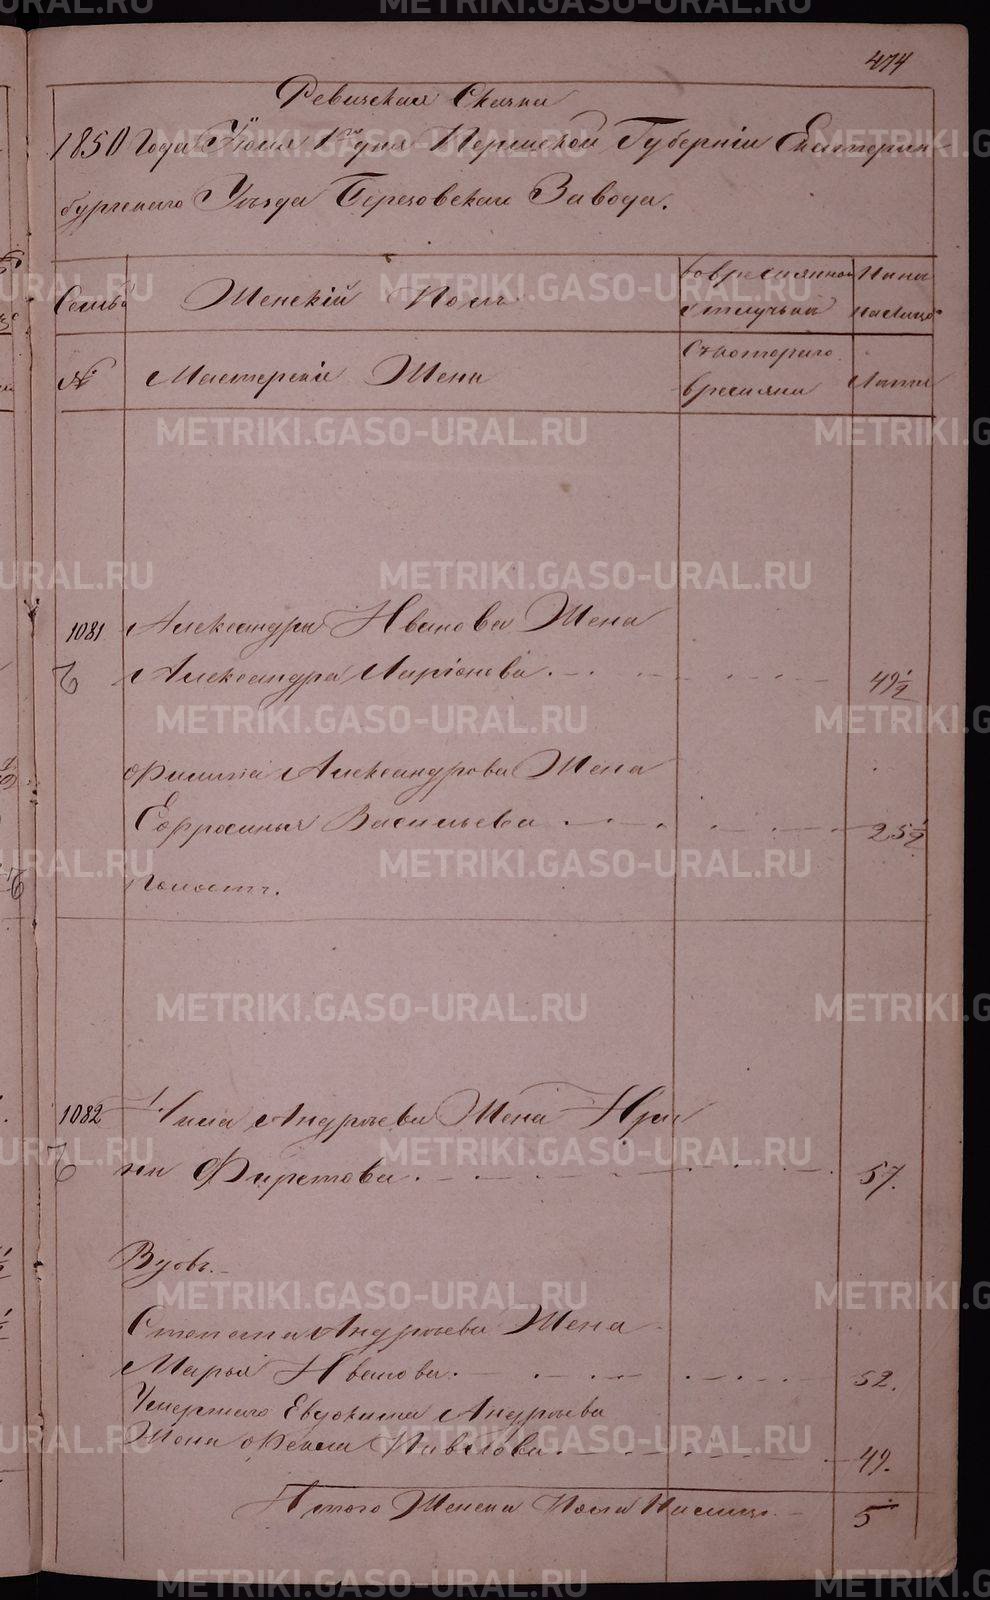 474
Ревижская Скачка
1850 Года Июля 1го дня Пермской Губерніи Екатерин-
бургскаго Уѣзда Березовскаго Завода.
Семьи Женскій Полъ Вовременной Нынѣ
отлучкѣ налицо
№ Мастерскіе Жены Съкотораго Лѣта
времяни
1081 Александра Иванова Жена
Александра Ларіонова 49 1/2
Филипа Александрова Жена
Ефросинья Васильева 25 1/2
1082 Нила Андреева Жена Ири
на Фирсова 57.
Вдовъ.
Степана Андреева Жена
Марья Иванова 52.
Умершаго Евдокима Андреева
Жена Фекла Павлова 49.
Итого Женска Пола Налицо 5
METRIKI.GASO-URAL.RU